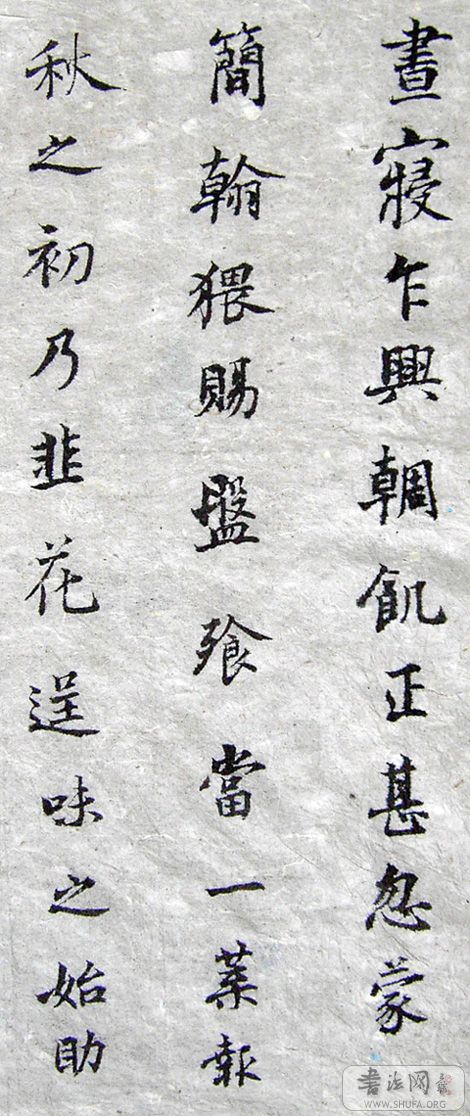 晝寢乍興輖飢正甚忽蒙
簡翰猥賜盤飱當一葉報
秋之初乃韭花逞味之始助
書法网
WWW.SHUFA.ORG